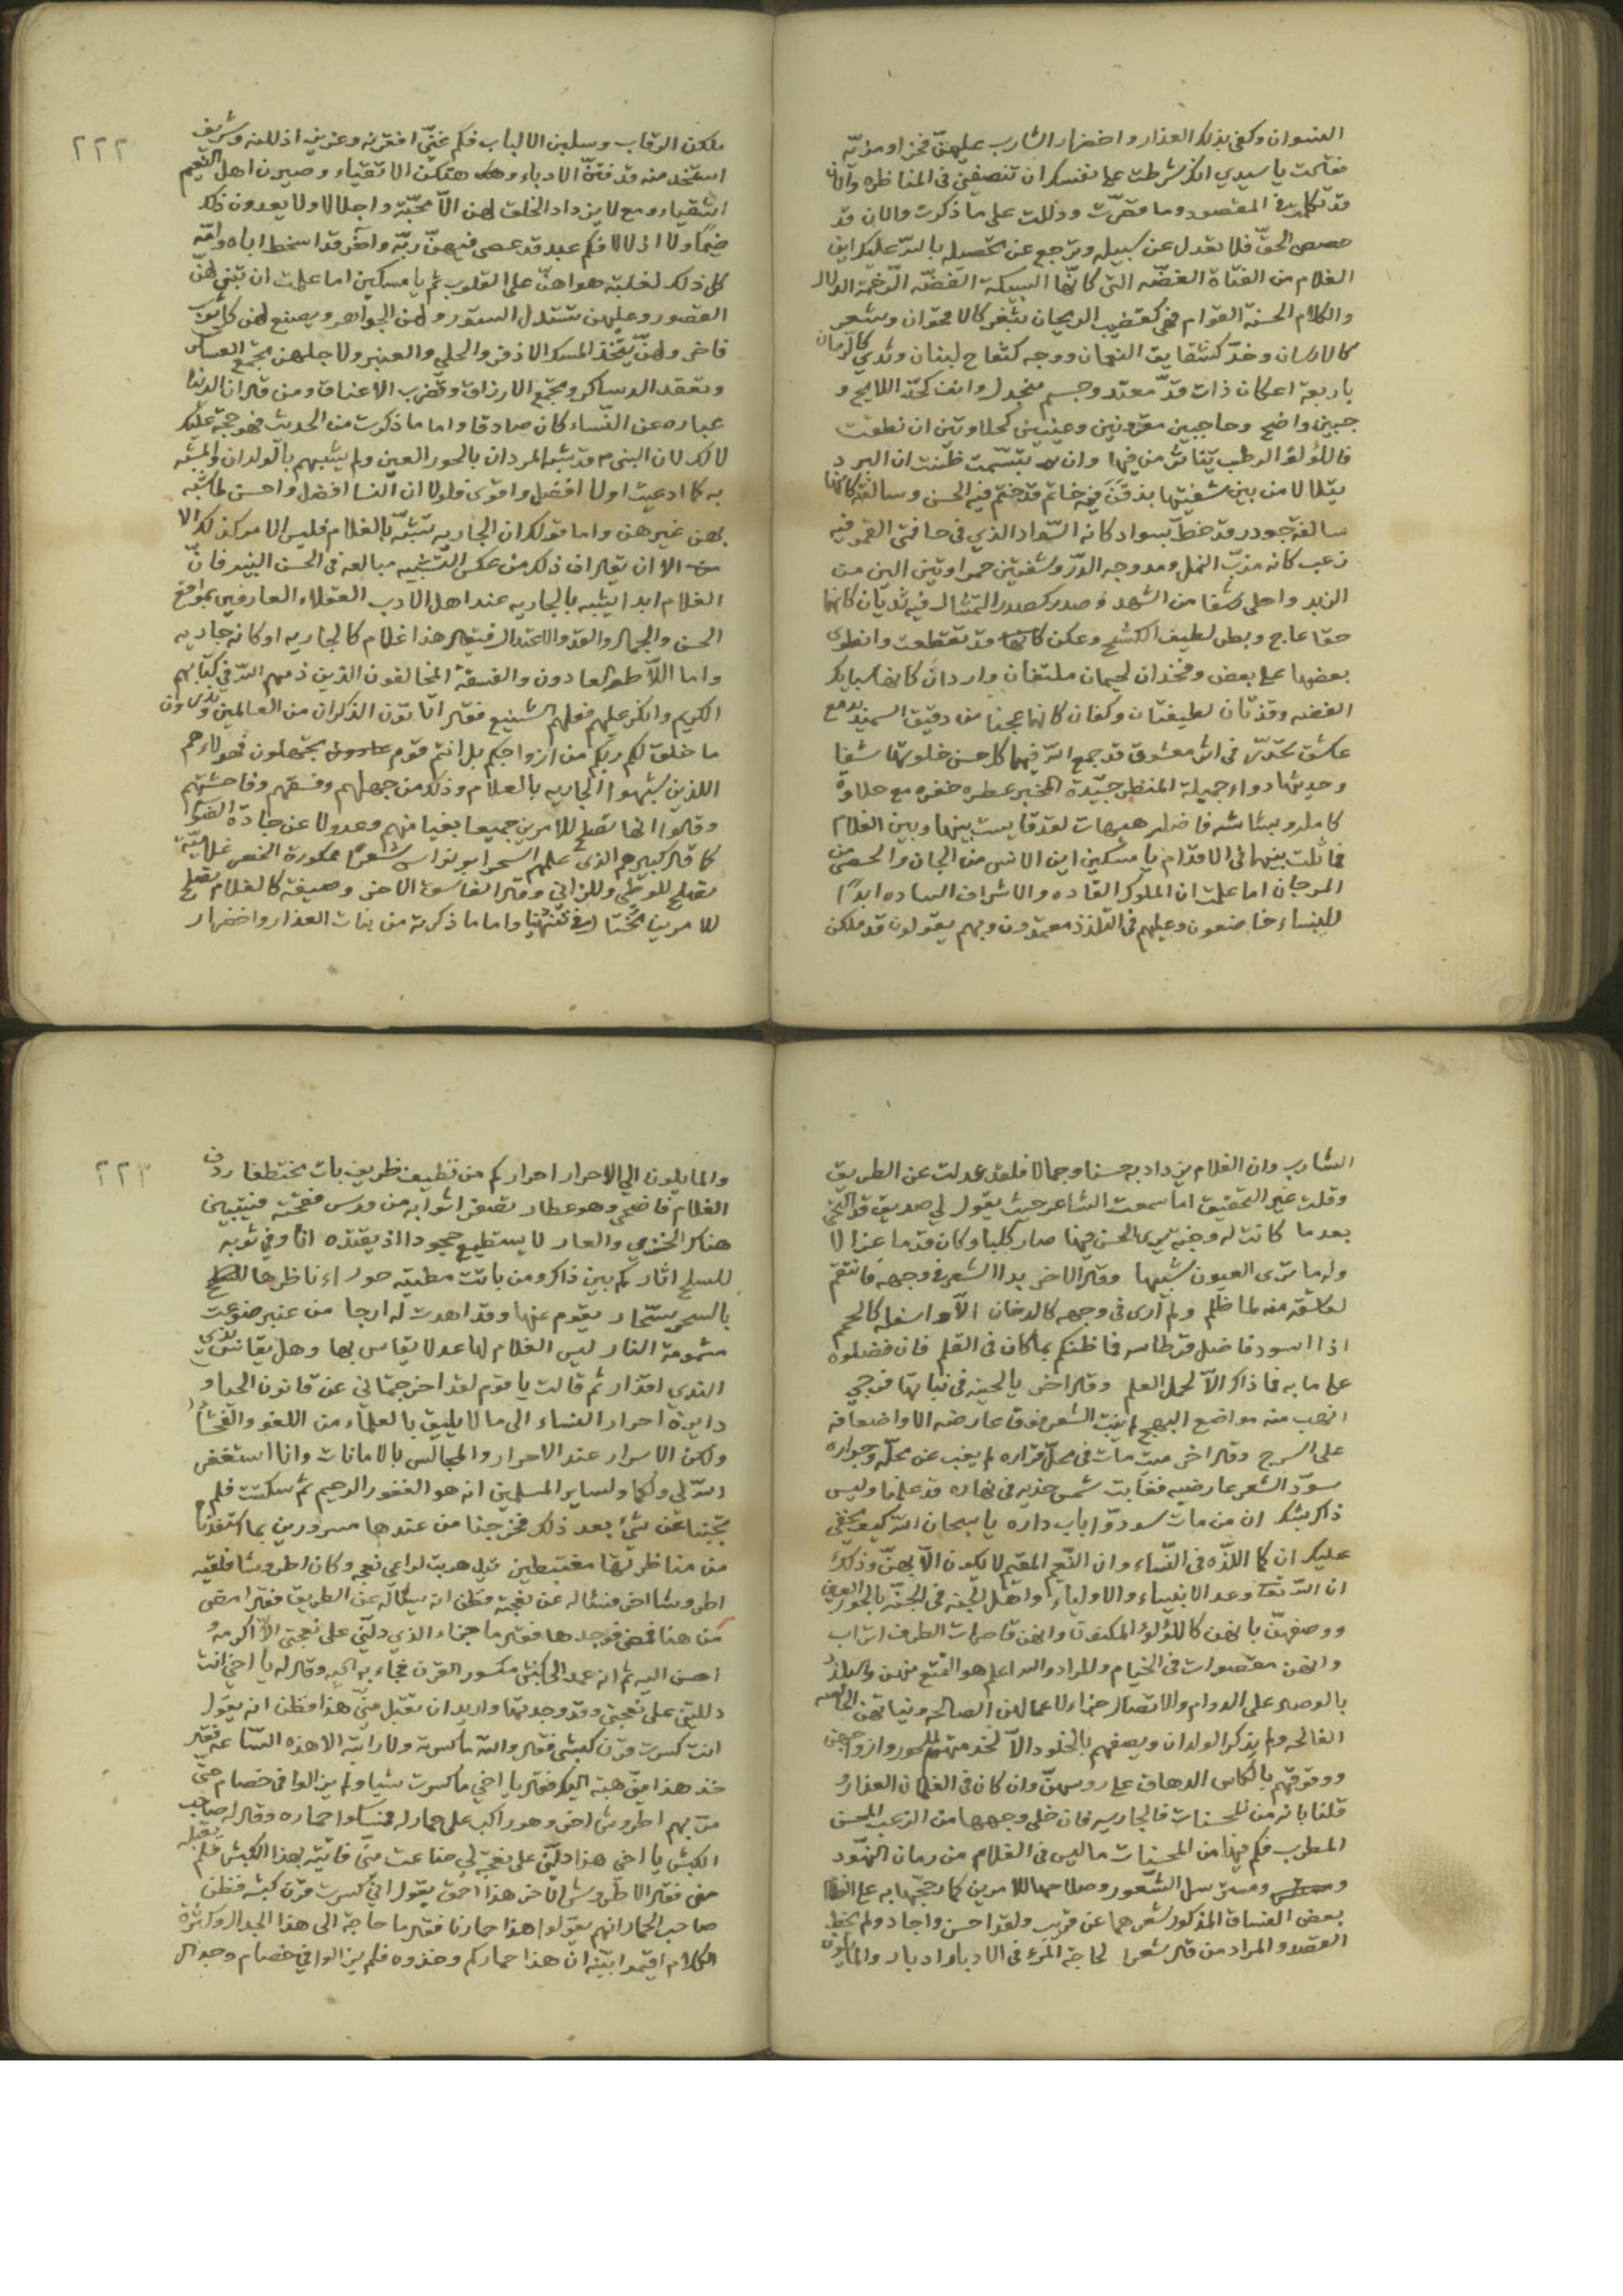 النسوان وكفى بذلك العذار واخضرار الشارب عليهنّ فخرا ومزيّه
فقالت يا سيدي انك شرطت على نفسك ان تنصفني في المناظره والان
قد تكلمت المقصود وما قصّرت ودللت على ما ذكرت والان قد
حصص الحقّ فلا تعدل عن سبيله وترجع عن تحصيله بالله عليك اين
الغلام من الفتاة الغضّه التي كانّها السبيكة الفضّه الرّخيمة الدلال
والكلام الحسنة القوام فهي كقضيب الريحان بثغر كالاقحوان وشعر
كالارسان وخدّ كشقايق النعمان ووجه كتفاح لبنان وثدي كالرمان
باربعة اعكان ذات قدّ معتد وجسم منجدل وانف كحدّ اللايح و
جبين واضح وحاجبين مقرونين وعينين كحلاوتين ان نطقت
فاللؤلؤ الرطب يتناثر من فيها وان تبسّمت ظننت ان البرد
يتلالا من بين شفتيها بذقنَ فيه خاتم قد ختم فيه الحسن وسالفه كانها
سالفة جودر قد خطّ بسواد كانه السّواد الذي في حافتي القمر فيه
زغب كانه مدبّ النمل ومدوجه الدّرّ وشفتين حمراوتين الين من
الزبد واحلى رشفا من الشهد وصدر كصدر التمثال فيه ثديان كانها
حقا عاج وبطن لطيف الكشح وعكن قد تقطعت وانطوى
بعضها على بعض وفخذان لحيمان ملتفان واردان كانها سبايك
الفضه وقدمان لطيفتان وكفان كانها عجنا من دقيق السميد مع
عاشق تحدّث في اثر معشوق قد جمع الله فيهما كل حسن خلوتها شفا
وحديثها دواء جميلة المنظر جيّدة المخبر عطره خفره مع حلاوة
كامله وبشاشه فاضله هيهات لقد قايست بينها وبين الغلام
فماثلت بينها في الاقدام يا مسكين اين الانس من الجان والحصى من
المرجان اما علمت ان الملوك القاده والاشراف الساده ابدًا
للنساء خاضعون وعليهم في التلذذ معتمدون وبهم يقولون قد ملكن
٢٢٢
ملكن الرقاب وسلبن الالباب فكم غنيّ افقرنه وعزيز اذللنه وشريف
استخدمنه قد فتنّ الادباء وهتكن الاتقياء وصيرن اهل النعيم
اشقياء ومع لا يزداد الخلق لهن الاّ محبّة واجلالا ولا يعدون ذلك
ضيمًا ولا اذلالا فكم عبد قد عصى فيهنّ ربّه واخر قد اسخط اباه وامّه
كل ذلك لغلبة هواهنّ على القلوب ثم يا مسكين اما علمت ان تبنى لهنّ
القصور وعليهن تنسدل الستور ولهن الجواهر ويصنع لهن كل ثوب
فاخر ولهنّ يتّخذ المسك الاذفر والحلي والعنبر ولاجلهن تجمع العساكر
وتعقد الدساكر وتجمع الارزاق وتضرب الاعناق ومن قال ان الدنيا
عباره عن النّساء كان صادقا واما ما ذكرت من الحديث فهو حجة عليك
لا لك لان النبي م قد شبه المردان بالحور العين ولم يشبههم بالولدان والمشبه
به كما ادعيت اولا افضل واقوى فلولا ان النسا افضل واحسن لما شبّه
بهن غيرهن واما قولك ان الجاريه تشبّه بالغلام فليس الامر كذلك
الا ان يقال ان ذلك من عكس التّشبيه مبالغه في الحسن النبيه فانّ
الغلام ابدا يشبه بالجاريه عند اهل الادب العقلاء العارفين بمواقع
الحسن والجمال والقد والاعتدال فيقال هذا غلام كالجاريه او كانه جاريه
واما اللاّطة العادون والفسقة المخالفون الذين ذمهم الله في كتابهم
الكريم وانكر عليهم فعلهم الشنيع فقال اتاتون الذكران من العالمين وتذرون
ما خلق لكم ربكم من ازواجكم بل انتم قوم تجهلون فهولاء هم
اللذين شبهوا الجاريه بالغلام وذلك من جهلهم وفسقهم وفاحشتهم
وقالوا انها تصلح للامرين جميعا بغيا منهم وعدولا عن جادة الصواب
كما قال كبيرهم الذي علمهم السحر ابو نواس شعرًا ممكورة الخصر غلاميّة
تصلح للوطي وللزاني وقال الفاسق الاخر وصيفة كالغلام تصلح
للامرين واما ما ذكرته من بنات العذار واخضرار
الشارب وان الغلام يزداد به حسنا وجمالا فلقد عدلت عن الطريق
وقلت غير التحقيق اما سمعت الشاعر حيث يقول لي صديق قد التحى
بعدما كانت له وجنة يرى الحسن فيها صار كلبا وكان قدما غزالا
ولم ما ترى العيون شبيها وقال الاخر بدا الشعر في وجهه فانتقم
لعاشقه منه لما ظلم ولم ارى في وجهه كالدخان الاّ واسفله كالحمم
اذا اسود فاضل قرطاسه فما ظنكم بمكان في القلم فان فضلوه
على ما به فما ذاك الاّ لجهل العلم وقال اخر يا لحية في نباتها فرجي
اذهب منه مواضع البهج لم ينبت الشعر فوق عارضه الا واضعافه
على السرج وقال اخر ميت مات في محلّ قراره لم يغب عن محلّه وجواره
سوّد الشعر عارضيه فغابت شمس خديه في نهاره قد علمنا وليس
ذاك بشك ان من مات سودوّا باب داره يا سبحان الله كيف يخفى
عليك ان كمال اللذّه في النّساء وان النّعيم المقيم لا يكون الاّ بهنّ وذلك
ان الله تعالى وعد الانبياء والاولياء واهل الجنه في الجنّة بالحور العين
ووصفهنّ بانهن كاللؤلؤ المكنون وانهن قاصرات الطرف اتراب
وانهن مقصورات في الخيام والمراد والله اعلم هو التمتع بهن والتلذذ
بالوصل على الدوام والاتصال جزاء لاعمالهن الصالحه ونياتهن الخالصه
الفالحه ولم يذكر الولدان ويصفهم بالخلود الاّ لخدمتهم للحور وازواجهن
ووقوفهم بالكاس الدهاق على روسهنّ وان كان في الغلمان العذار
قلنا بانه من المحسنات فالجاريه فان خلى وجهها من الزغب الحسن
المطرب فكم فيها من المحسنات ما ليس في الغلام من رمان النهود
ومسترسل الشّعور وصلاحها للامرين كما رجحها به على الغلام
بعض الفساق المذكور شعرهما عن قريب ولقد احسن واجاد ولم يخط
القصد والمراد من قال شعرا لحاجة المرء في الادبار ادبار والمايلون
٢٢٣
والمايلون الي الاحرار احراركم من نظيف ظريف بات مختطفا ردف
الغلام فاضحى وهو عطار تصفر اثوابه من ورس فقحته فيتبين
هناك الخزي والعار لا يستطيع جحودا اذ يقتذه انا وفي ثوبه
للسلح اثار كم بين ذاك ومن باتت مطيته حوراء ناظرها
بالسحر سحّار يقوم عنها وقد اهدت له ارجا من عنبر ضوعت
مشمومة النار ليس الغلام لها عدلا يقاس بها وهل يقاس
الندي اقذار ثم قالت يا قوم لقد اخرجتماني عن قانون الحيا و
دايرة احرار النساء الى ما لا يليق بالعلماء من اللغو والفحشا
ولكن الاسرار عند الاحرار والمجالس بالامانات وانا استغفر
الله لي ولكما ولساير المسلمين انه هو الغفور الرحيم ثم سكتت فلم
تجبنا عن شئ بعد ذلك فخرجنا من عندها مسرورين بما استفدنا
من مناظرتها مغتبطين قيل هربت لراعي نعجه وكان اطروشا فلقيه
اطروشا اخر فسئاله عن نعجته فظن انه يساله عن الطريق فقال امضى
من هنا فمضى فوجدها فقال ما جزاء الذي دلّني على نعجتي الاّ اكرمه و
احسن اليه ثم انه عمد الى كبش مكسور القرن فجاء به اليه وقال له يا اخي انت
دللتني على نعجتي وقد وجدتها واريد ان تقبل منيّ هذا فظن انه يقول
انت كسرت قرن كبشي فقال والله ما كسرته ولا رايته الا هذه السّاعه فقال
خذ هذا منيّ هبة اليك فقال يا اخي ما كسرت شيا ولم يزالوا في خصام حتى
مرّ بهم اطروش اخر وهو راكب على حمار له فمسكوا حماره وقال له صاحب
الكبش يا اخي هذا دلّني على نعجة لي ضاعت منيّ فاتيته بهذا الكبش فلم يقبله
مني فقال الاطروش الاخر هذا احمق يقول انّي كسرت قرن كبشه فظن
صاحب الحمار انهم يقولوا هذا حمارنا فقال ما حاجة الى هذا الجدال وكثرة
الكلام اقيموا بيّنه ان هذا حماركم وخذوه فلم يزالوا في خصام وجدال